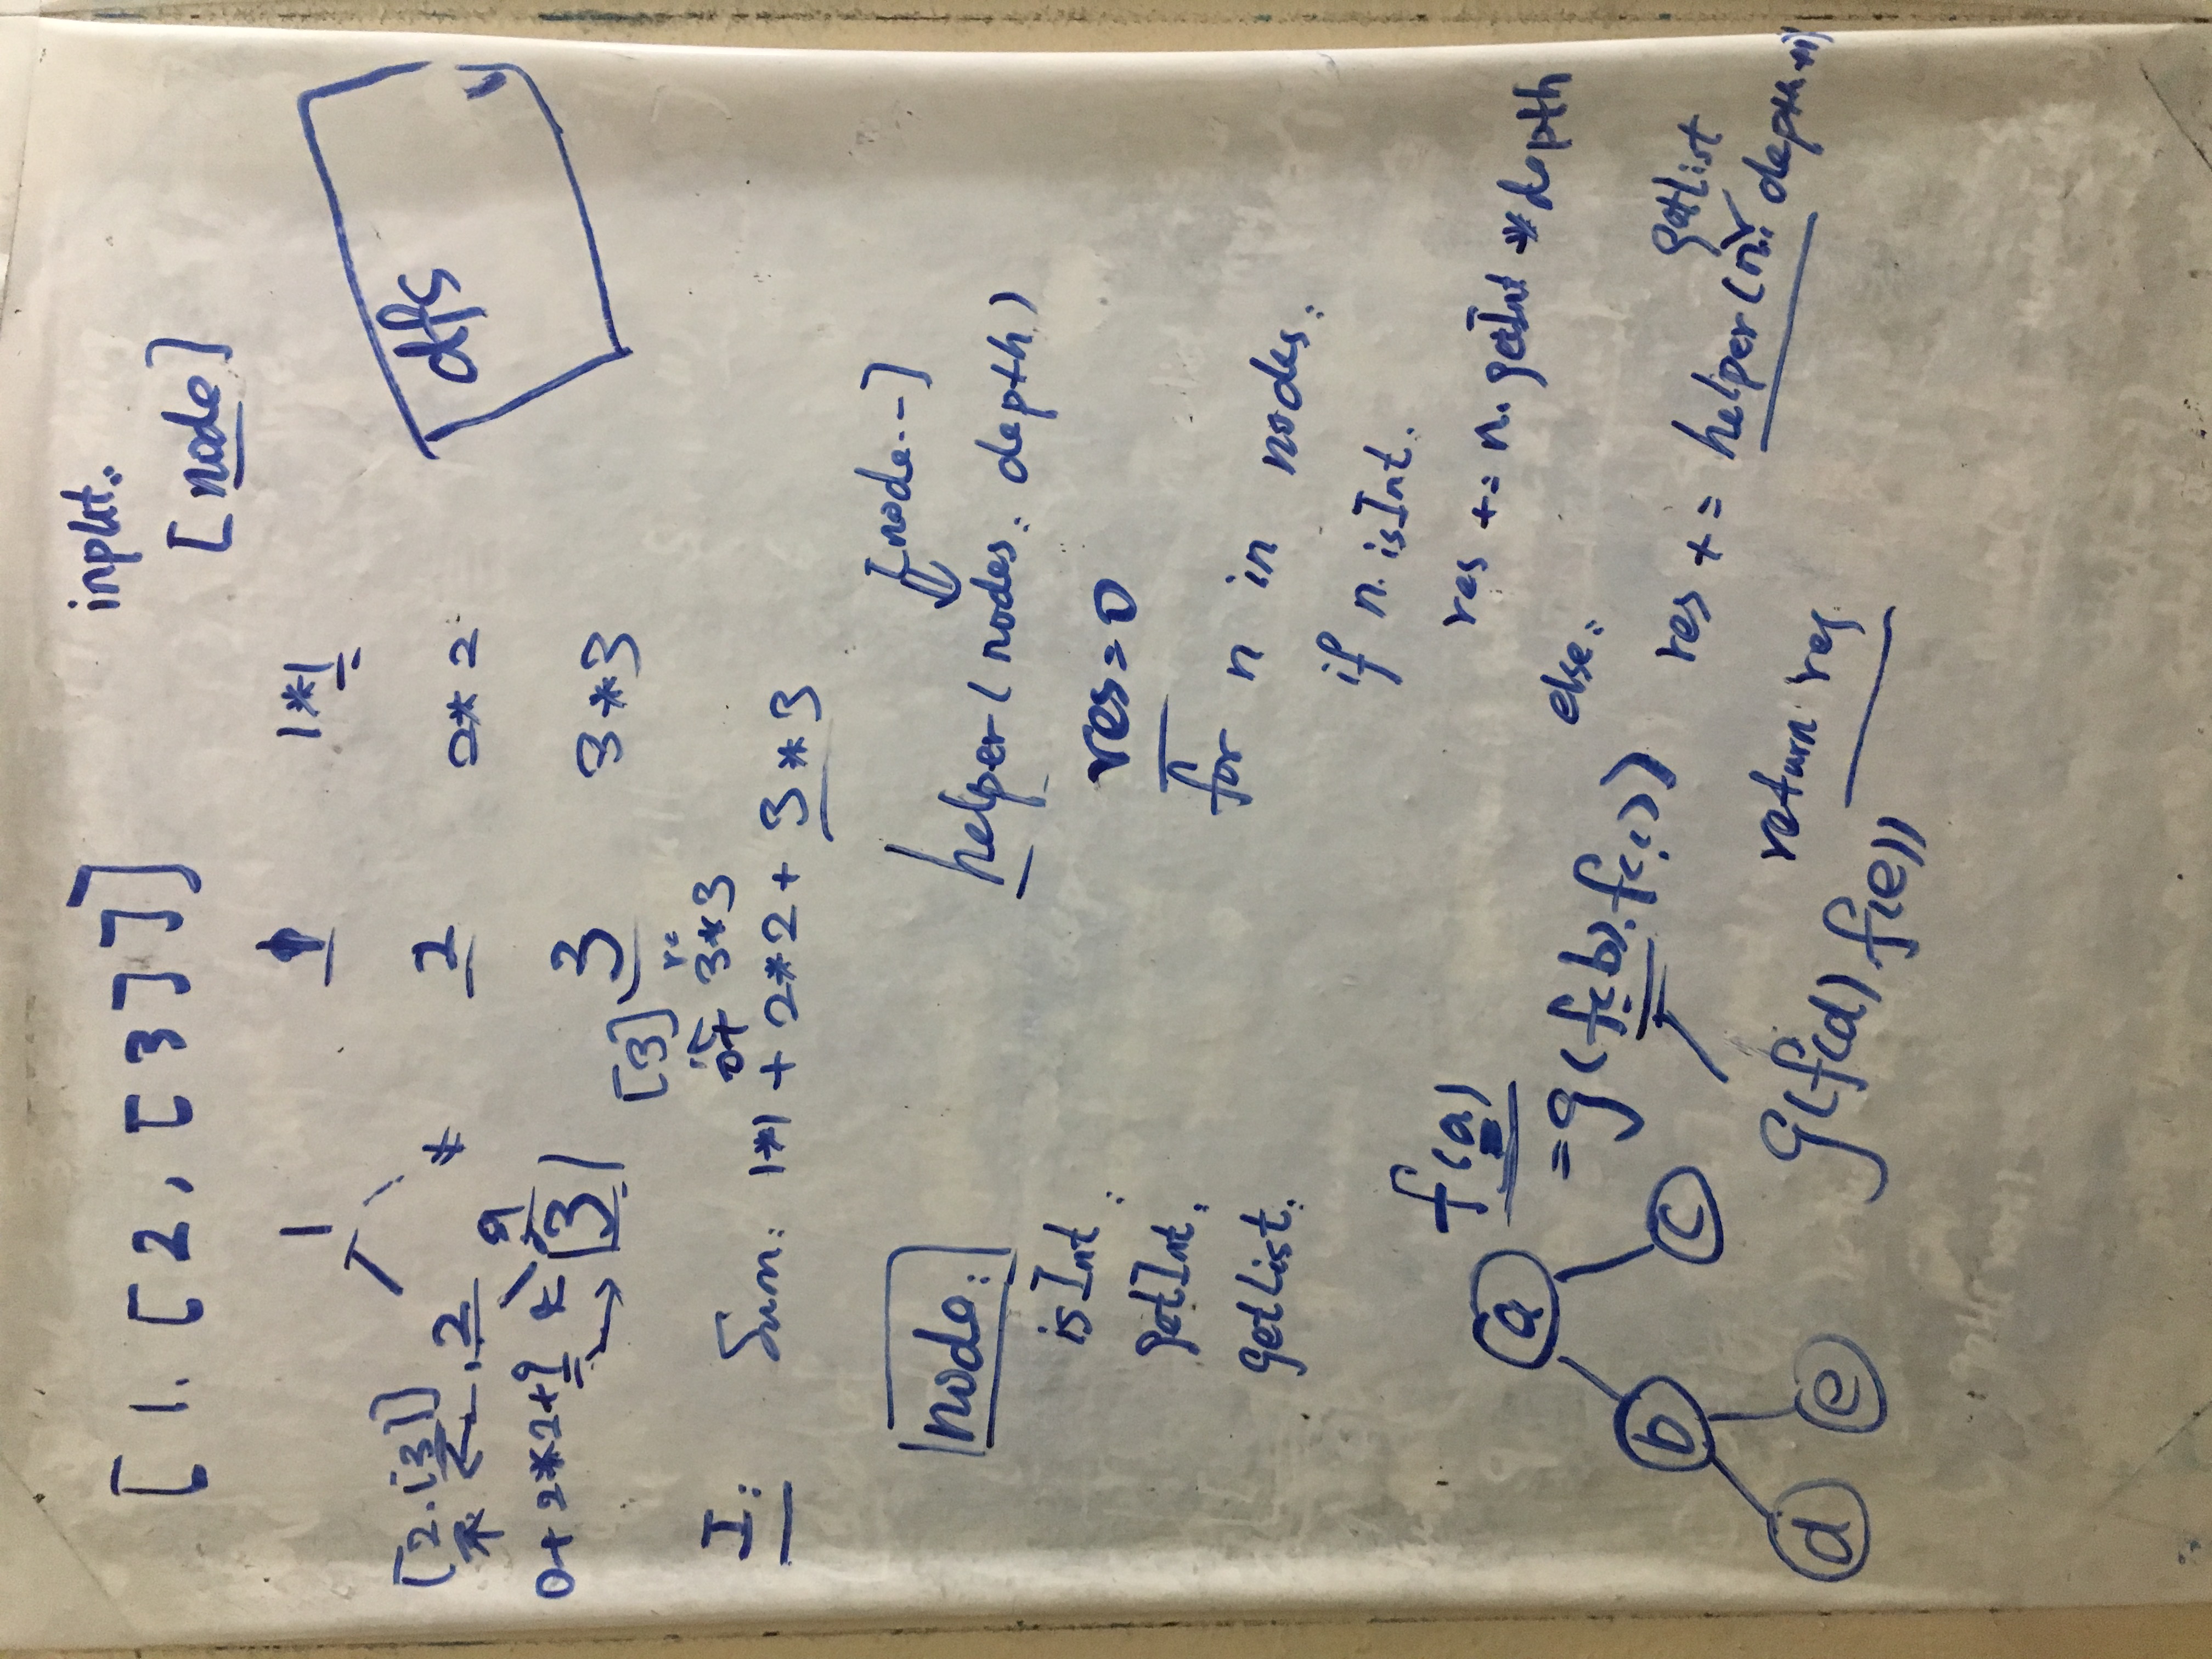 [ 1. [ 2, [ 3 ] ] ]
input:
[ node ]
1
1
1*1
[2.[3]]
2
*
2
2*2
dfs
9
0+ 2*2+9
3
3
3*3
[3]
0+ 3*3
I:
Sum: 1*1 + 2*2 + 3*3
node:
isInt
getInt,
getList.
[node..-]
helper( nodes, depth)
res=0
for n in nodes:
if n. isInt.
res += n. getInt *depth
else:
res += helper(n. getList depth+1)
return res
f(a)
=g(f(b).f(c))
g(f(d) f(e))
a
b
c
d
e